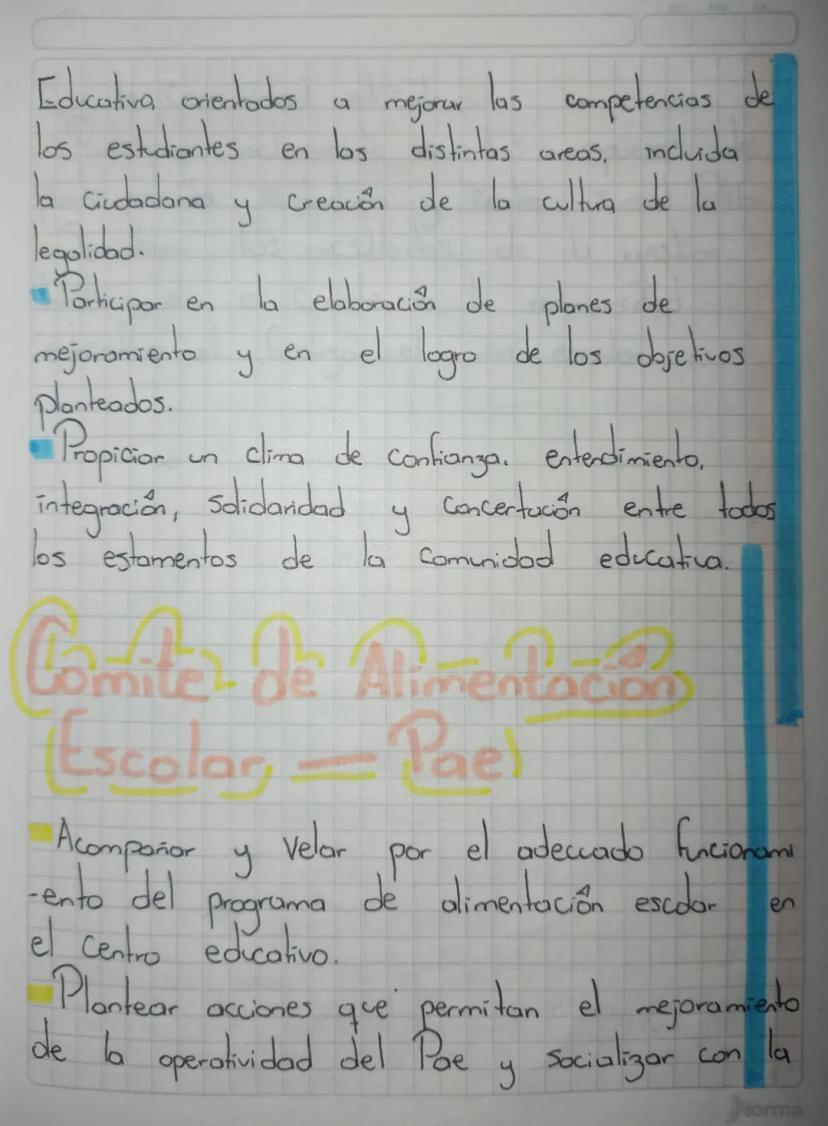 Educativa, orientados a mejorar las competencias de
los estudiantes en las distintas areas, incluida
la ciudadana y creación de la cultura de la
legalidad.
Participar en la elaboración de planes de
mejoramiento y en el logro de los objetivos
planteados.
Propiciar un clima de confianza. entendimiento,
integración, solidaridad y concertación entre todos
los estamentos de la comunidad educativa.
Comite de Alimentación
Escolar = Pae
Acompañar y velar por el adecuado funcionami
-ento del programa de alimentación escolar en
el centro educativo.
Plantear acciones que permitan el mejoramiento
de la operatividad del Pae y socializar con la
Norma